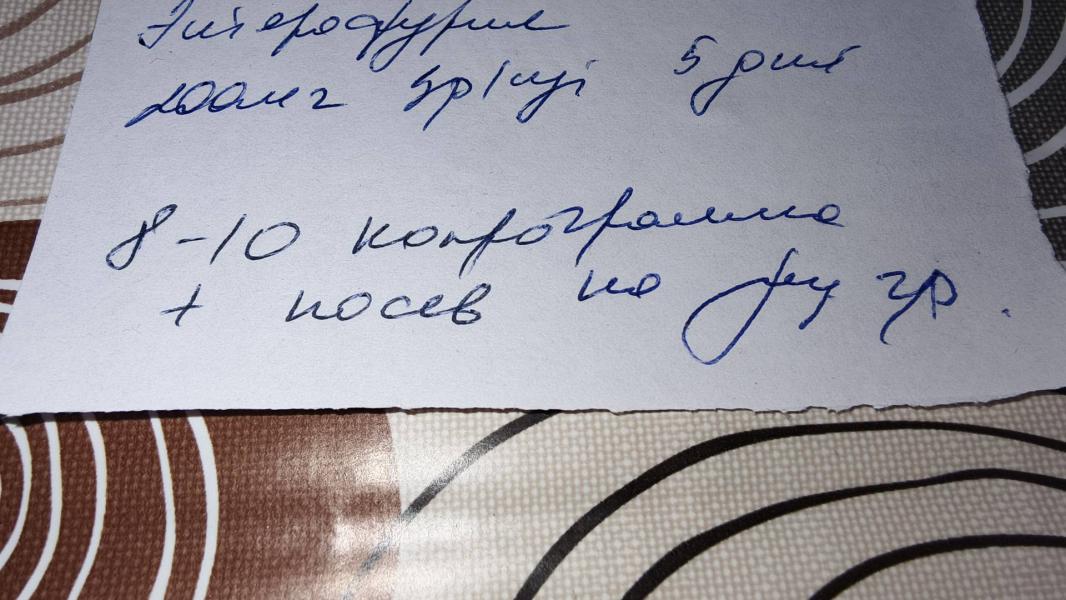 Энтерофурил
200мг 3р/сут 5 дней
8-10 копрограмма
+ посев на гр.